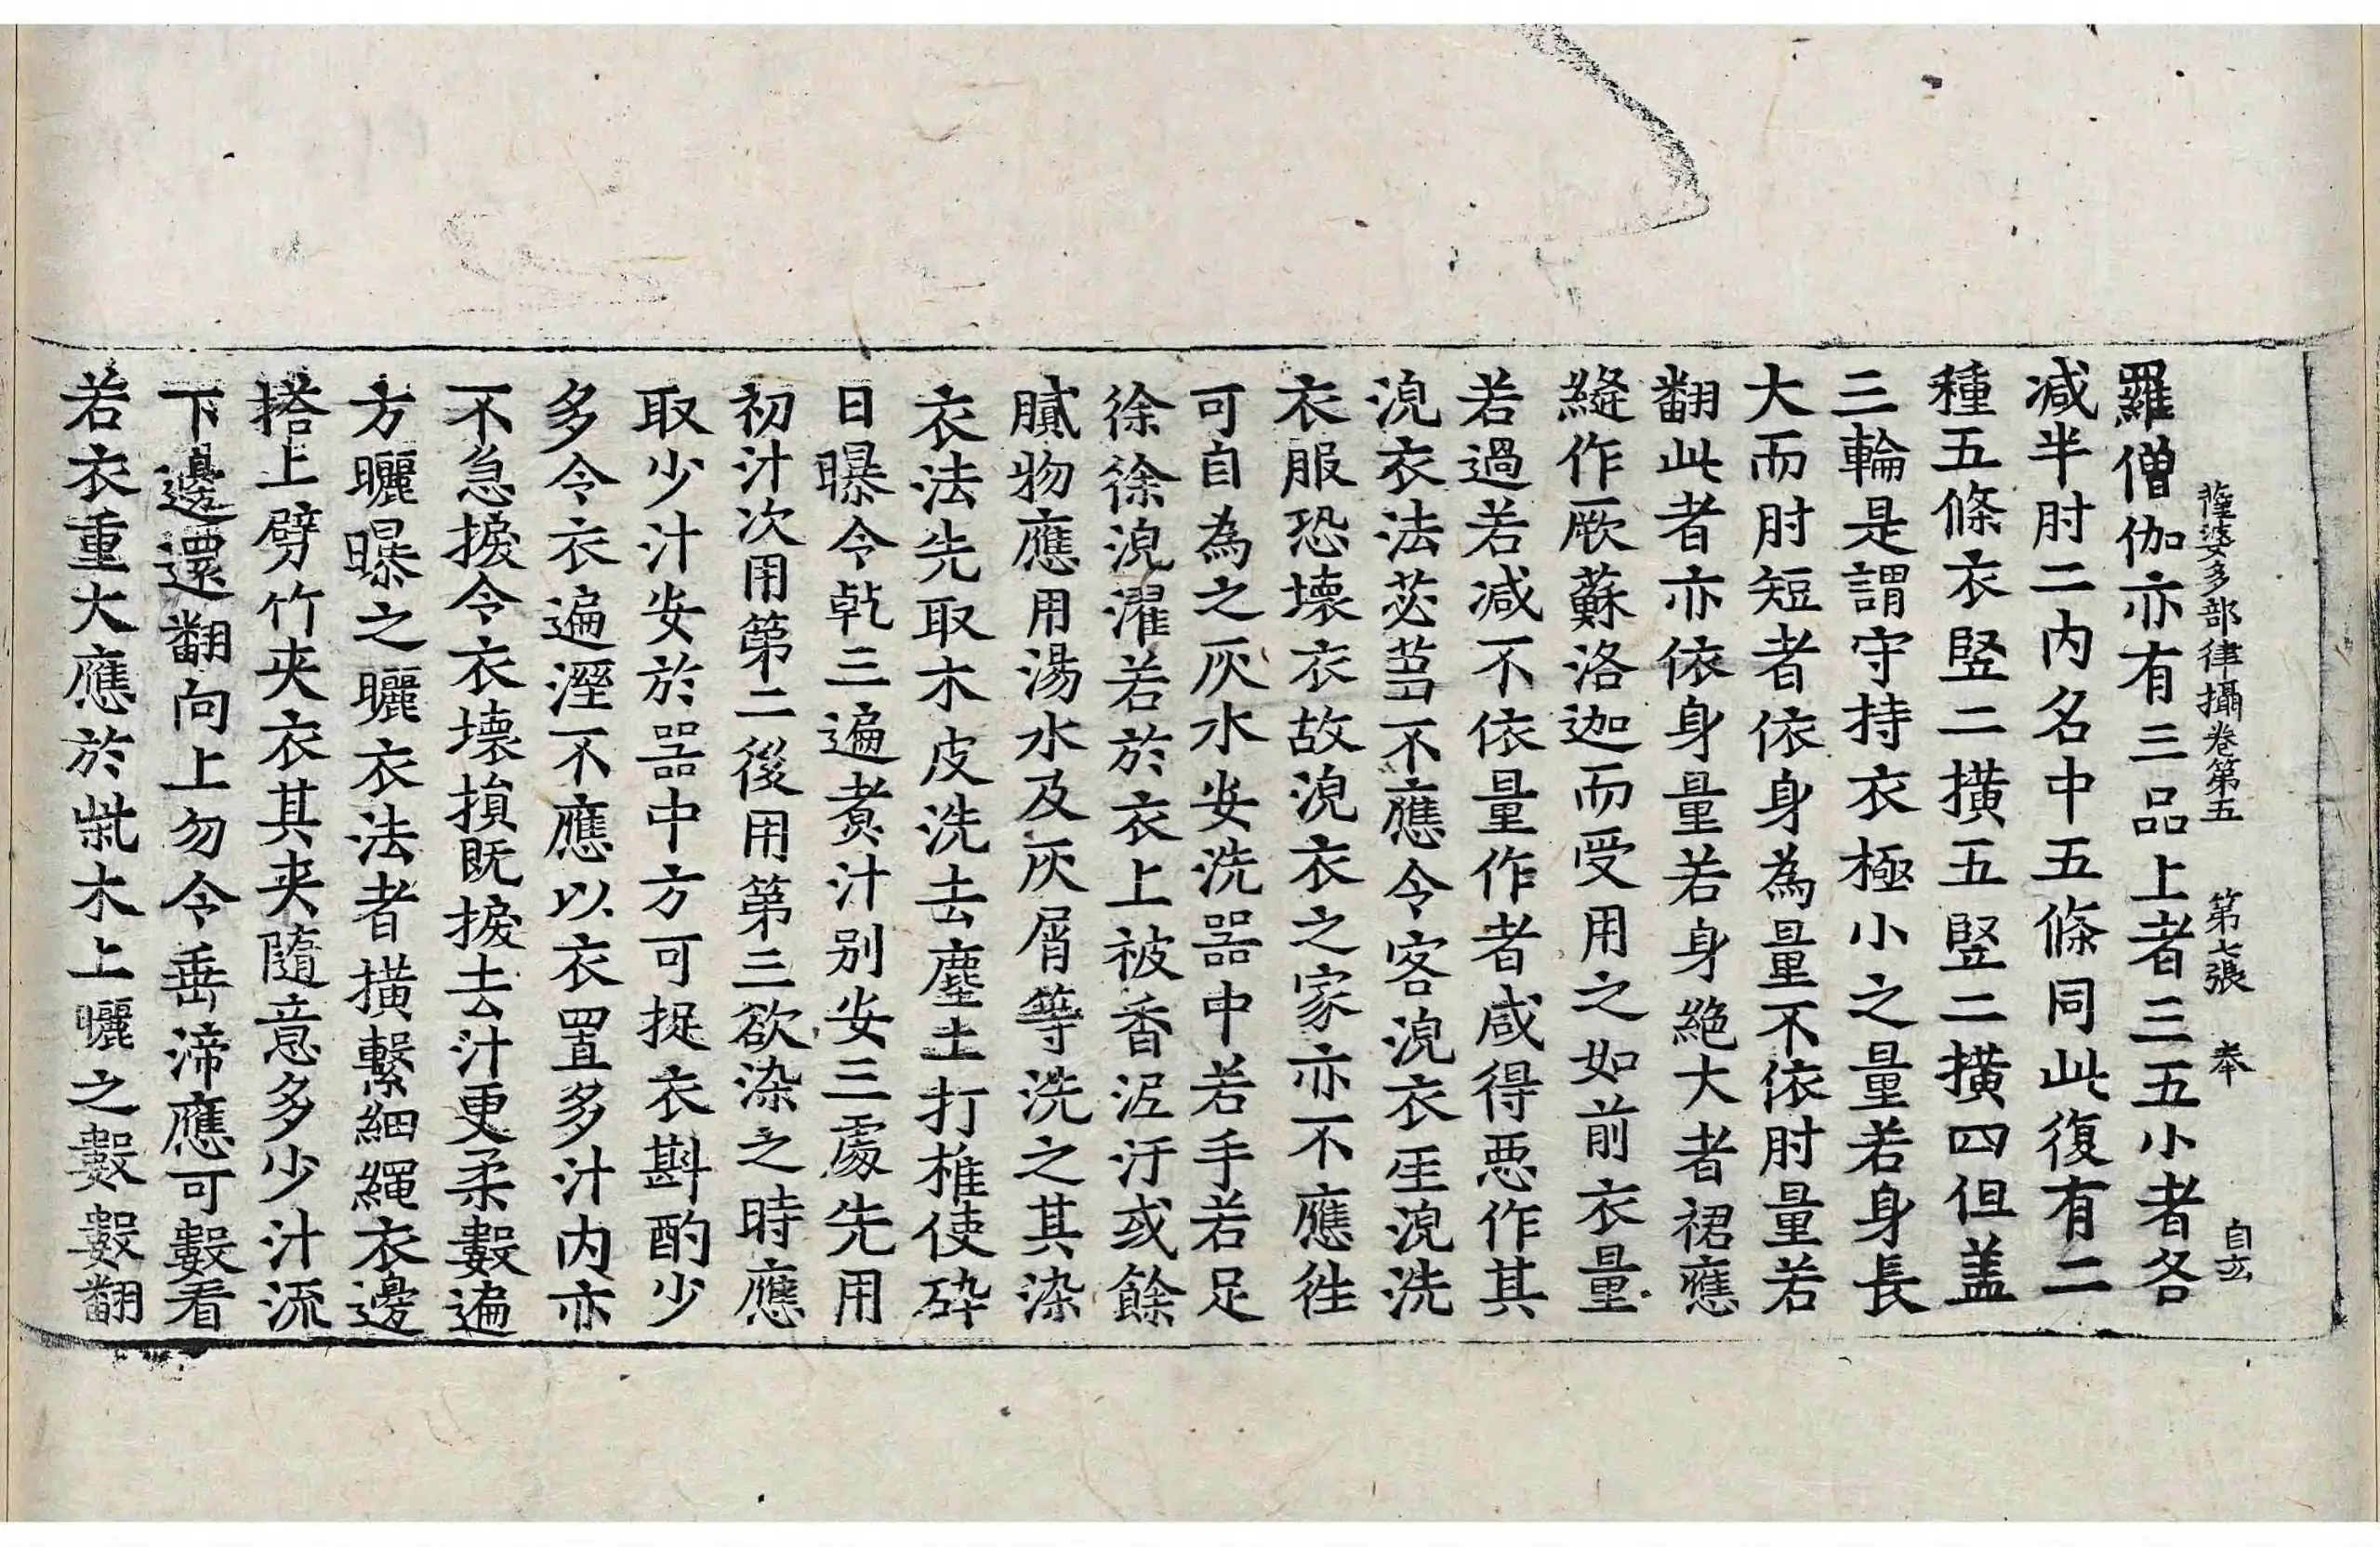 薩婆多部律攝卷第五 第七張 奉 自玄
羅僧伽亦有三品上者三五小者各
減半肘二内名中五條同此復有二
種五條衣竪二撗五竪二撗四但盖
三輪是謂守持衣極小之量若身長
大而肘短者依身為量不依肘量若
翻此者亦依身量若身絶大者裙應
縫作厥蘇洛迦而受用之如前衣量
若過若减不依量作者咸得惡作其
浣衣法苾芻不應令客浣衣𤯔浣洗
衣服恐壊衣故浣衣之家亦不應徃
可自為之灰水安洗器中若手若足
徐徐浣濯若於衣上被香泥汙或餘
膩物應用湯水及灰屑等洗之其染
衣法先取木皮洗去塵土打椎使碎
日曝令乾三遍煮汁别安三處先用
初汁次用第二後用第三欲染之時應
取少汁安於器中方可捉衣斟酌少
多令衣遍溼不應以衣置多汁内亦
不急捩令衣壊損既捩去汁更柔數遍
方曬曝之曬衣法者撗繫細繩衣邊
搭上劈竹夾衣其夾隨意多少汁流
下邊還翻向上勿令垂渧應可數看
若衣重大應於㭰木上曬之數數翻